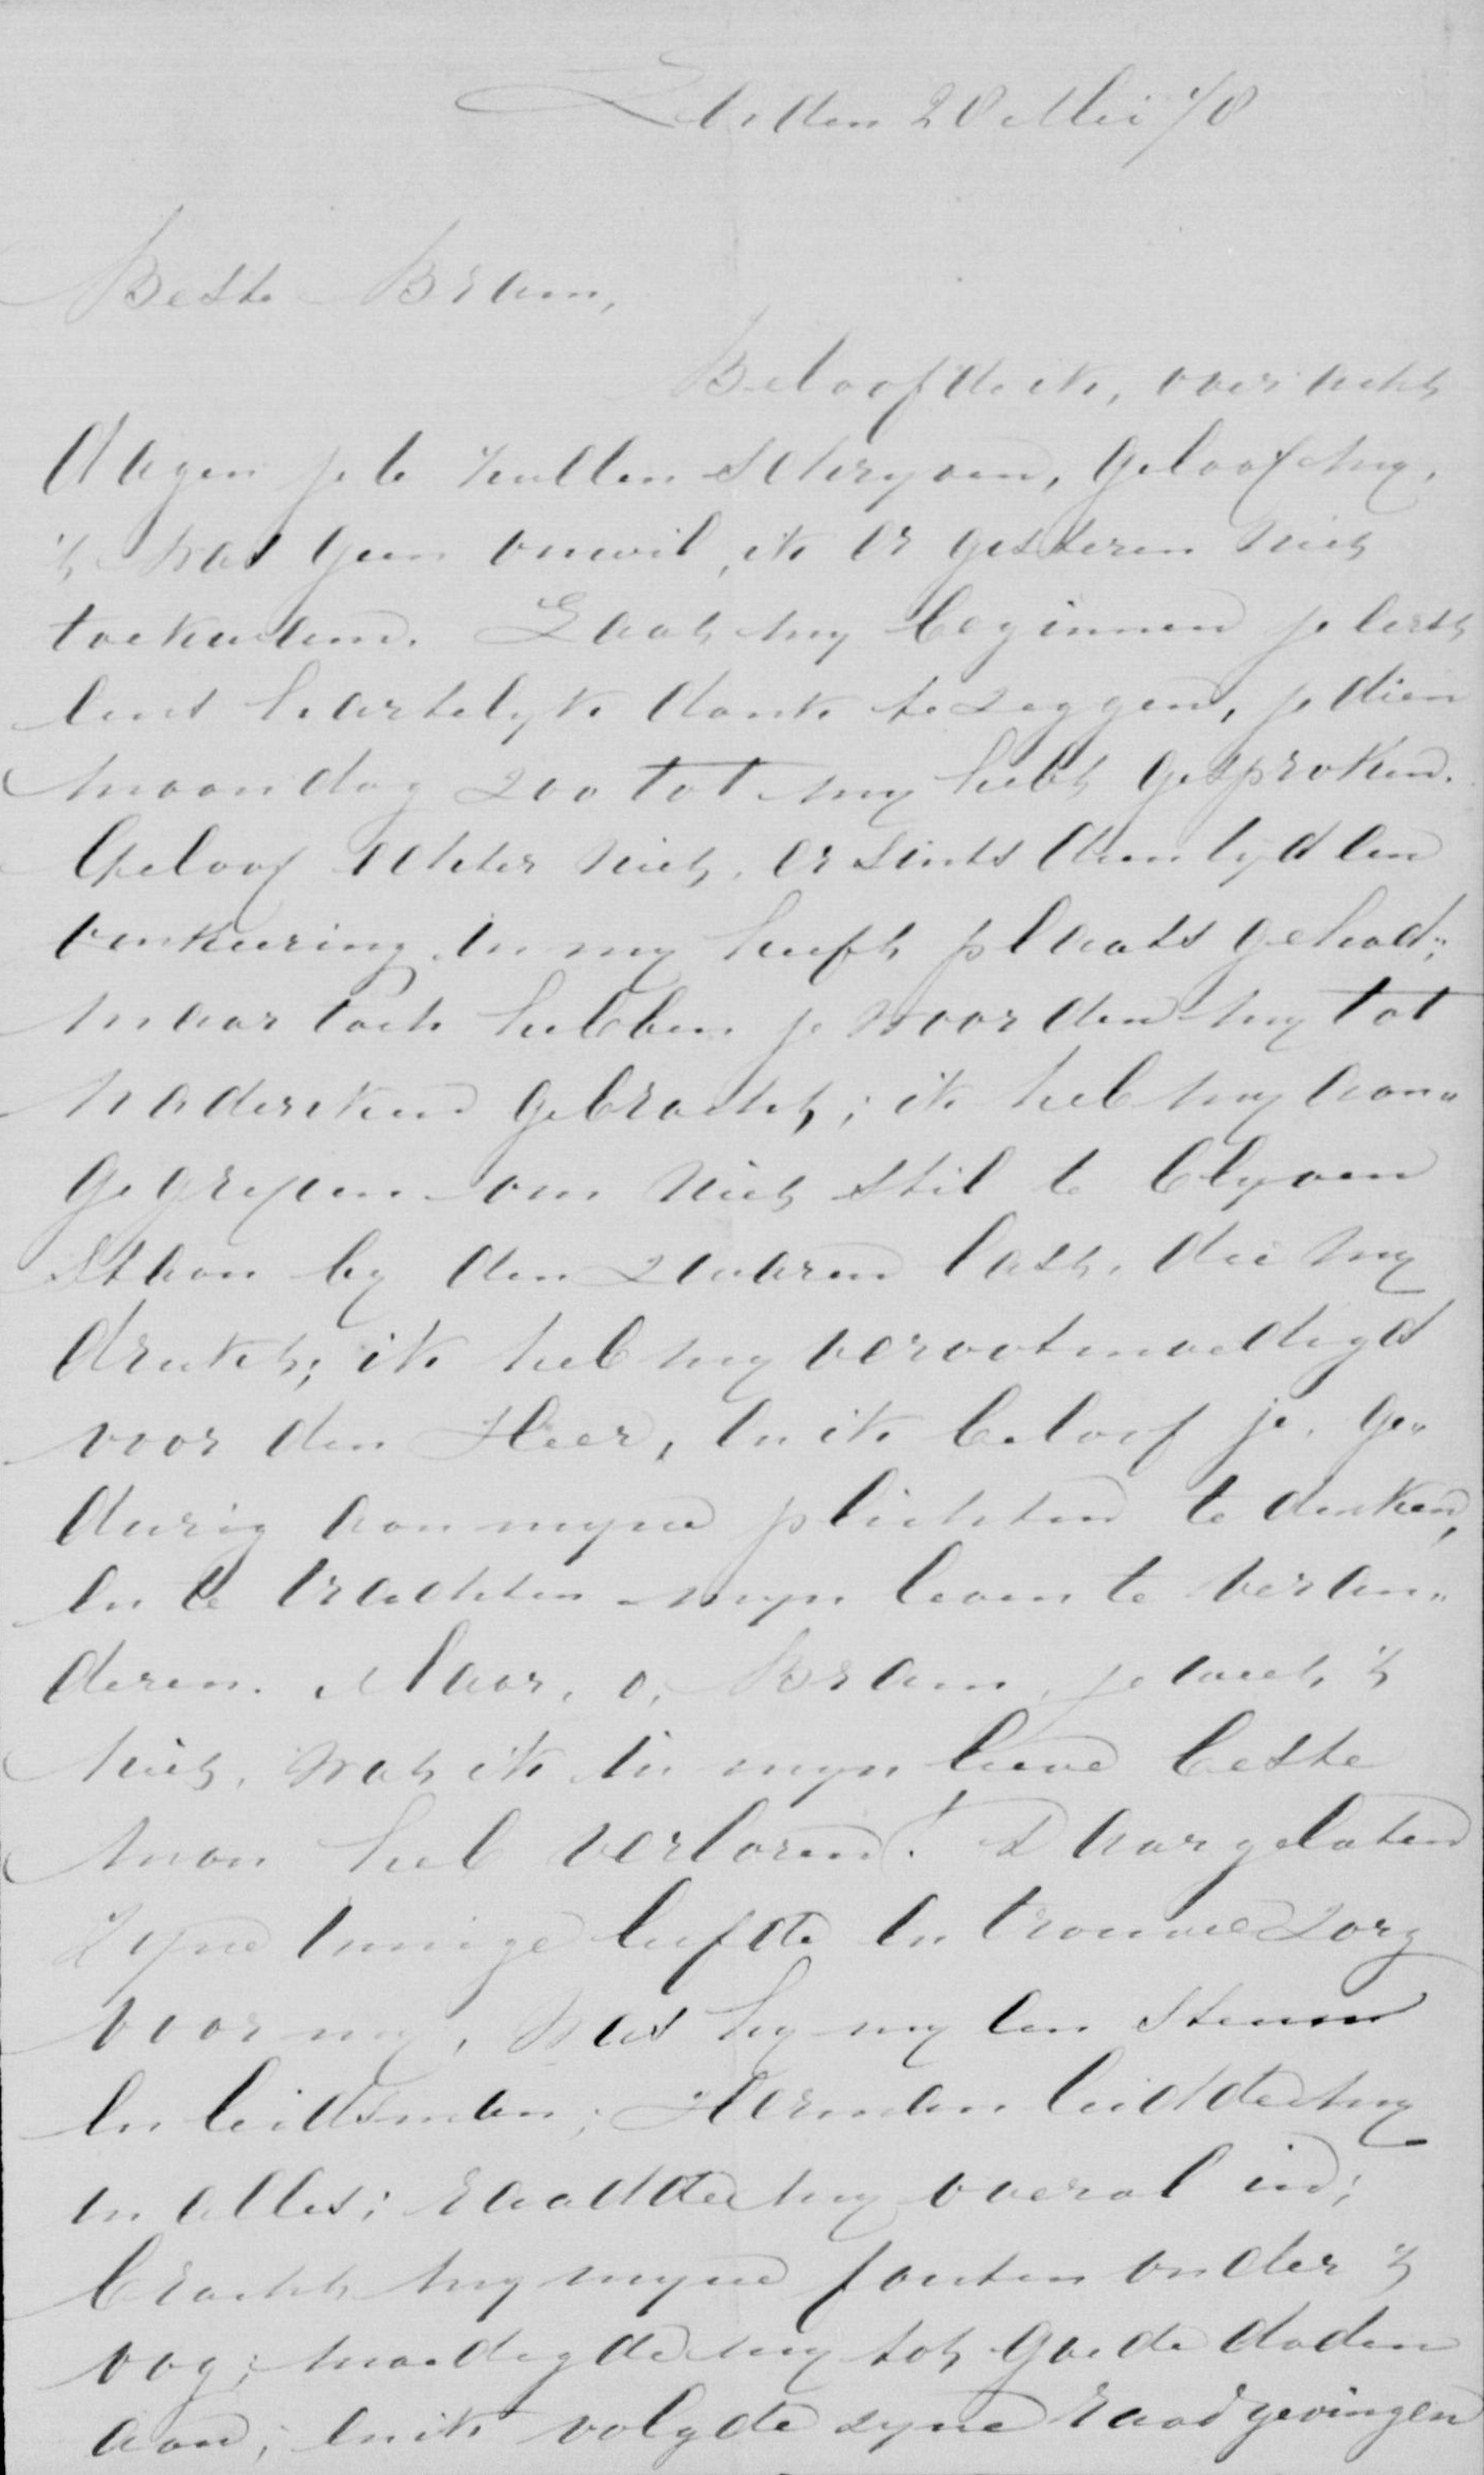 den 20 Mei 78
Beste Bram,
Beloofde ik, over acht
dagen je te zullen schryven, geloof my,
't was geen onwil, ik er gisteren niet
toekwam. Laat my beginnen je eerst
eens hartelyk dank te zeggen, je dien
maandag zoo tot my hebt gesproken.
Geloof echter niet, er sints dien tyd een
omkeering in my heeft plaats gehad;
maar toch hebben je woorden my tot
nadenken gebracht; ik heb my aan„
gegrepen om niet stil te blyven
staan by den zwaren last, die my
drukt; ik heb my verootmoedigd
voor den Heer, en ik beloof je, ge„
durig aan myne plichten te denken,
en te trachten myn leven te veran„
deren. Maar, o, Bram, je weet 't
niet, wat ik in myn lieve beste
man heb verloren! Daargelaten
zyne innige liefde en trouwe zorg
voor my, was hy my een steun
en leidsman; Herman leidde my
in alles; raadde my overal in;
bracht my myne fouten onder 't
oog; moedigde my tot goede daden
aan; en ik volgde zyne raadgevingen